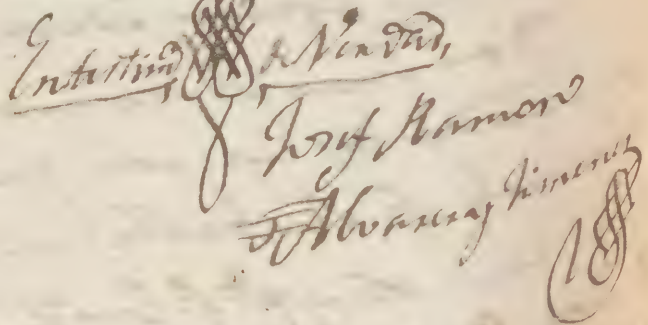 En testim.º de Verdad,
Josef Ramon
Alvarez Jimenez